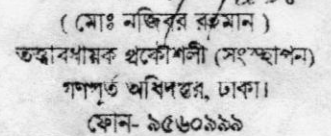 ( মোঃ নজিবর রহমান )
তত্ত্বাবধায়ক প্রকৌশলী (সংস্থাপন)
গণপূর্ত অধিদপ্তর, ঢাকা।
ফোন- ৯৫৬০৯৯৯